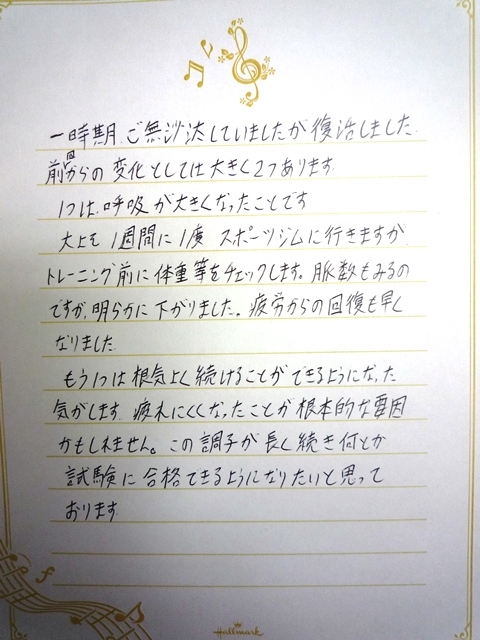 一時期、ご無沙汰していましたが復活しました。
前回からの変化としては大きく2つあります。
1つは、呼吸が大きくなったことです
大上も1週間に1度スポーツジムに行きますが
トレーニング前に体重等をチェックします。脈数もみるの
ですが、明らかに下がりました。疲労からの回復も早く
なりました
もう1つは根気よく続けることができるようになった
気がします。疲れにくくなったことが根本的な要因
かもしれません。この調子が長く続き何とか
試験に合格できるようになりたいと思って
おります
Hallmark